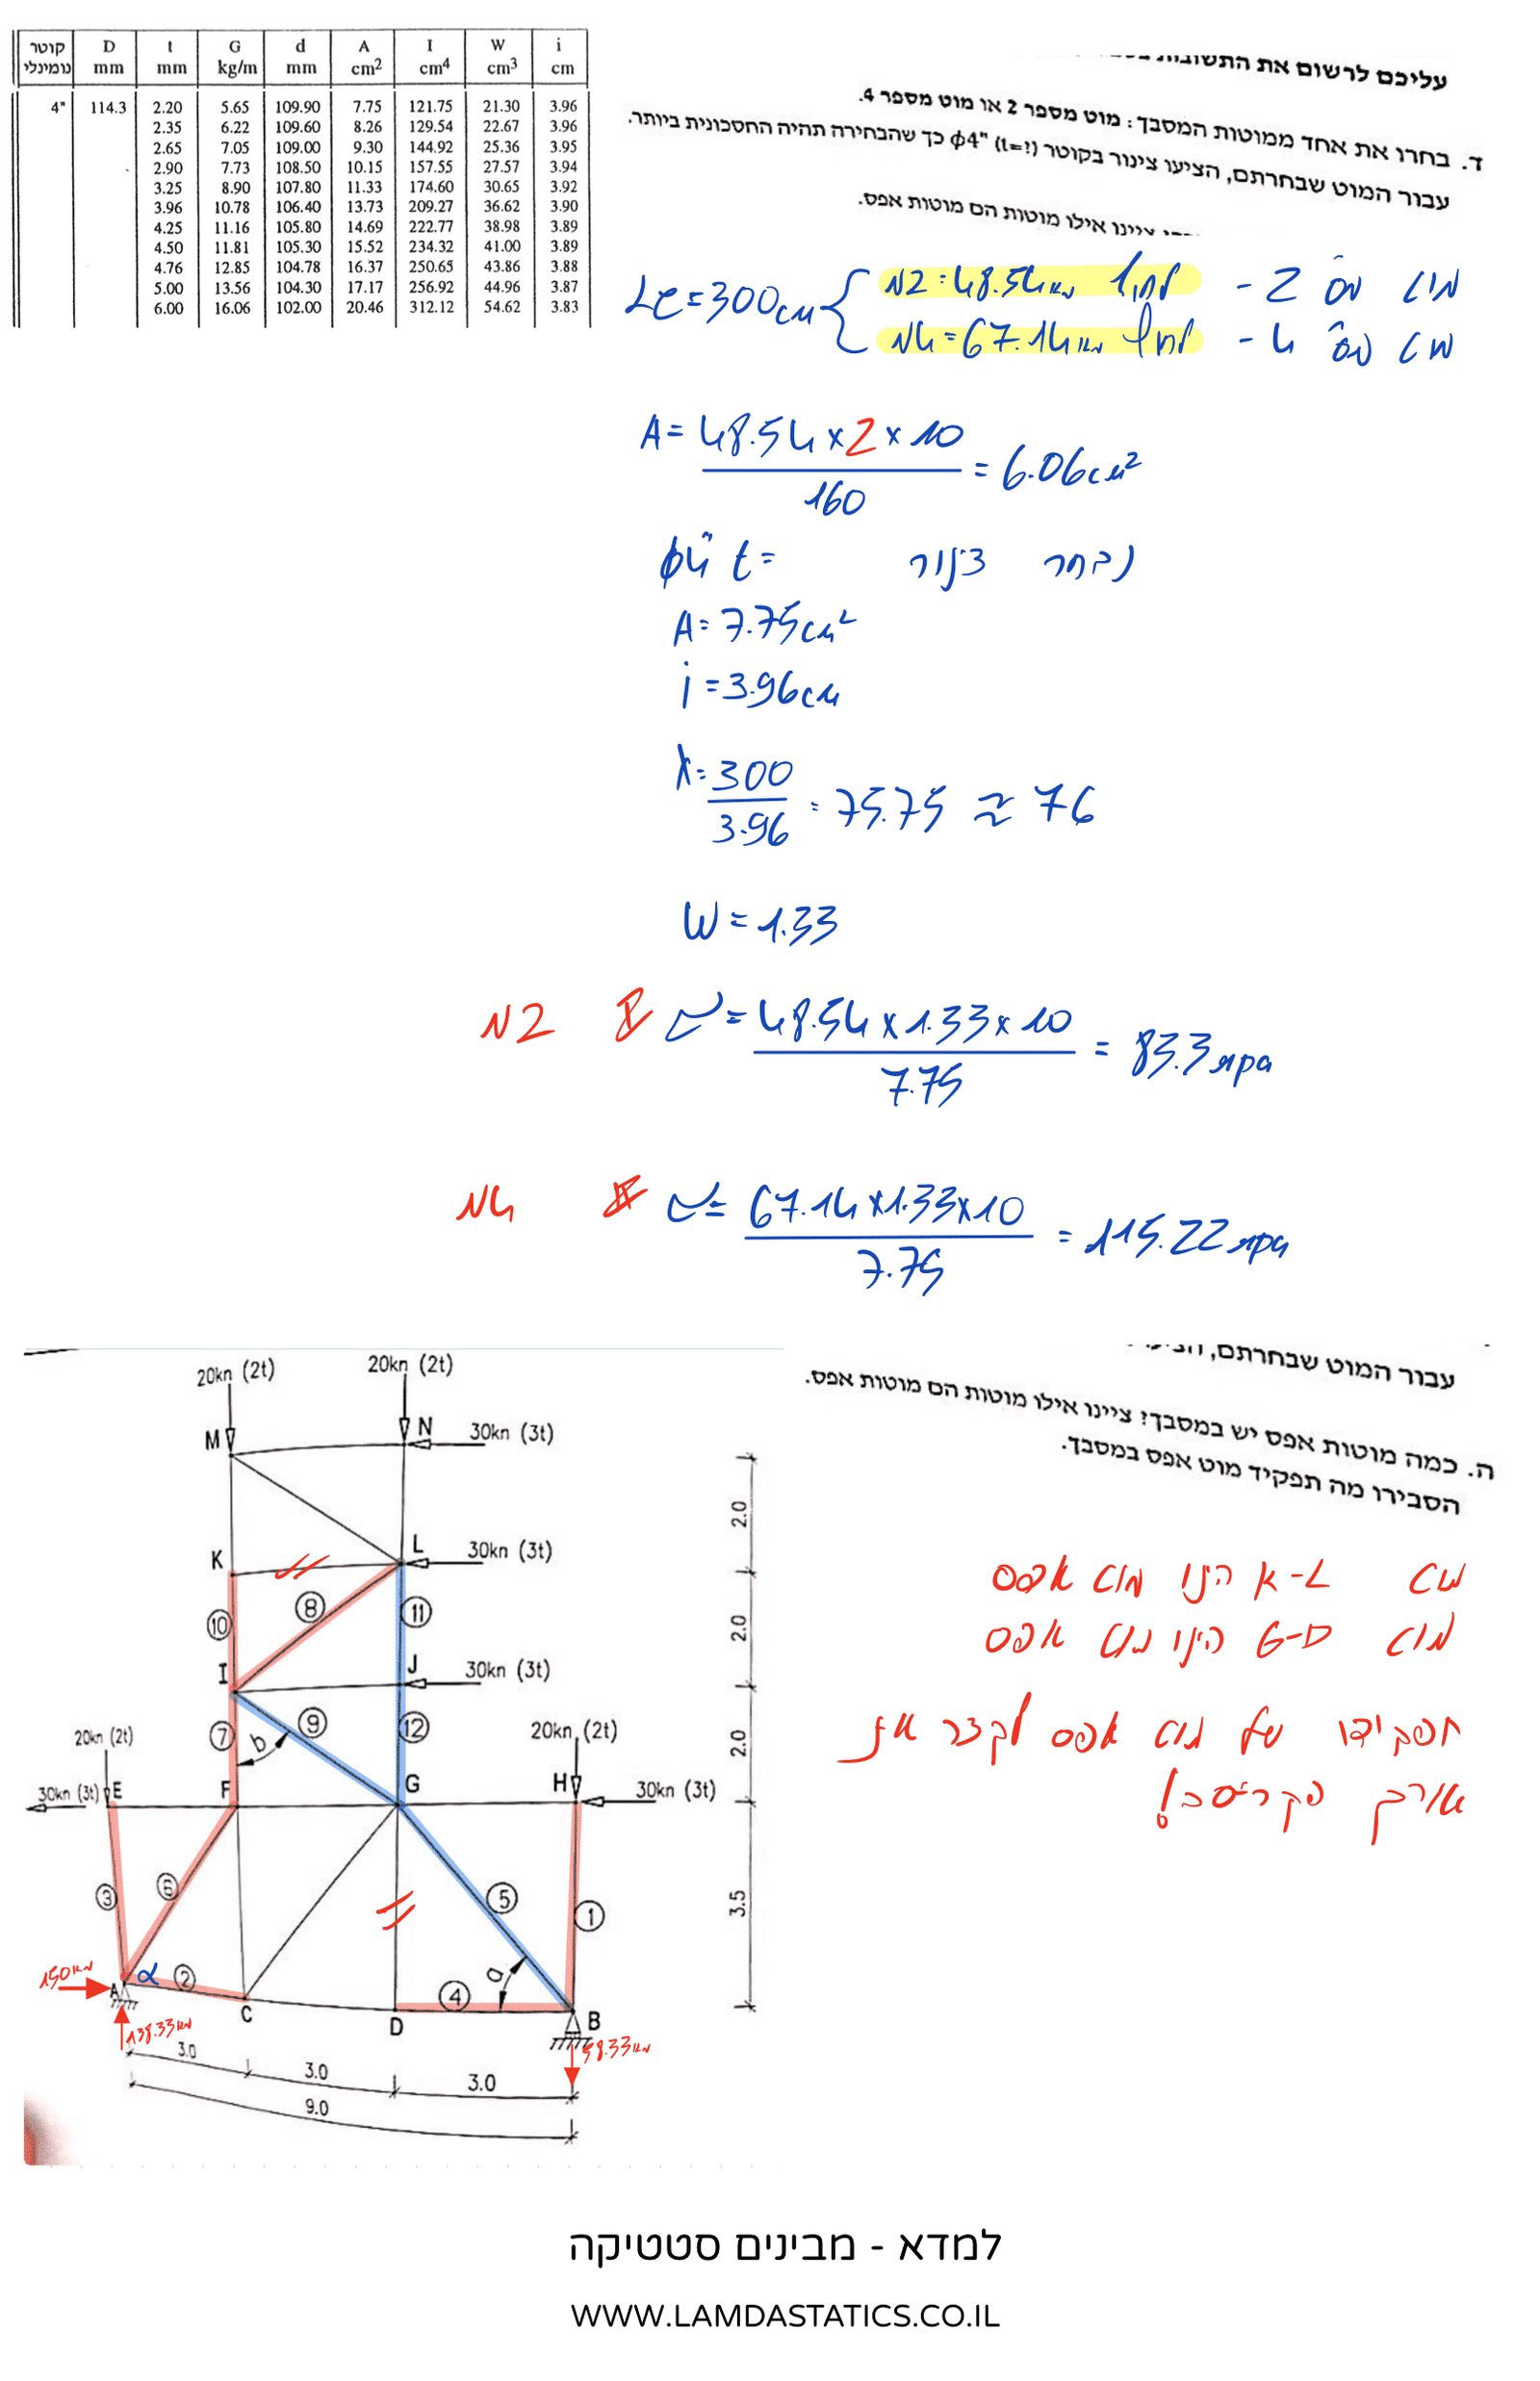 קוטר נומינלי D mm t mm G kg/m d mm A cm² I cm⁴ W cm³ i cm
4" 114.3 2.20 5.65 109.90 7.75 121.75 21.30 3.96
2.35 6.22 109.60 8.26 129.54 22.67 3.96
2.65 7.05 109.00 9.30 144.92 25.36 3.95
2.90 7.73 108.50 10.15 157.55 27.57 3.94
3.25 8.90 107.80 11.33 174.60 30.65 3.92
3.96 10.78 106.40 13.73 209.27 36.62 3.90
4.25 11.16 105.80 14.69 222.77 38.98 3.89
4.50 11.81 105.30 15.52 234.32 41.00 3.89
4.76 12.85 104.78 16.37 250.65 43.86 3.88
5.00 13.56 104.30 17.17 256.92 44.96 3.87
6.00 16.06 102.00 20.46 312.12 54.62 3.83
עליכם לרשום את התשובות
ד. בחרו את אחד ממוטות המסבך: מוט מספר 2 או מוט מספר 4.
עבור המוט שבחרתם, הציעו צינור בקוטר ϕ4" (t=?) כך שהבחירה תהיה החסכונית ביותר.
ציינו אילו מוטות הם מוטות אפס.
מוט מס' 2 - לחוץ N2=48.54
מוט מס' 4 - לחוץ N4=67.14
Le=300cm
A= 48.54x2x10 / 160 = 6.06cm²
נבחר צינור ϕ4" t=
A=7.75cm²
i=3.96cm
λ= 300 / 3.96 = 75.75 ≈ 76
W=1.33
N2 σ= 48.54x1.33x10 / 7.75 = 83.3 mpa
N4 σ= 67.14x1.33x10 / 7.75 = 115.22 mpa
עבור המוט שבחרתם,
ה. כמה מוטות אפס יש במסבך? ציינו אילו מוטות הם מוטות אפס.
הסבירו מה תפקיד מוט אפס במסבך.
מוט K-L הינו מוט אפס
מוט G-D הינו מוט אפס
תפקידו של מוט אפס לקצר את
אורך הקריסה!
20kn (2t) 20kn (2t)
M N 30kn (3t)
K L 30kn (3t)
2.0
10 8 11
2.0
I J 30kn (3t)
7 b 9 12
2.0
20kn (2t) 20kn (2t)
30kn (3t) E F G H 30kn (3t)
3 6 5 1
3.5
a
150
A α 2 4
C D B
138.33 58.33
3.0 3.0 3.0
9.0
למדא - מבינים סטטיקה
WWW.LAMDASTATICS.CO.IL